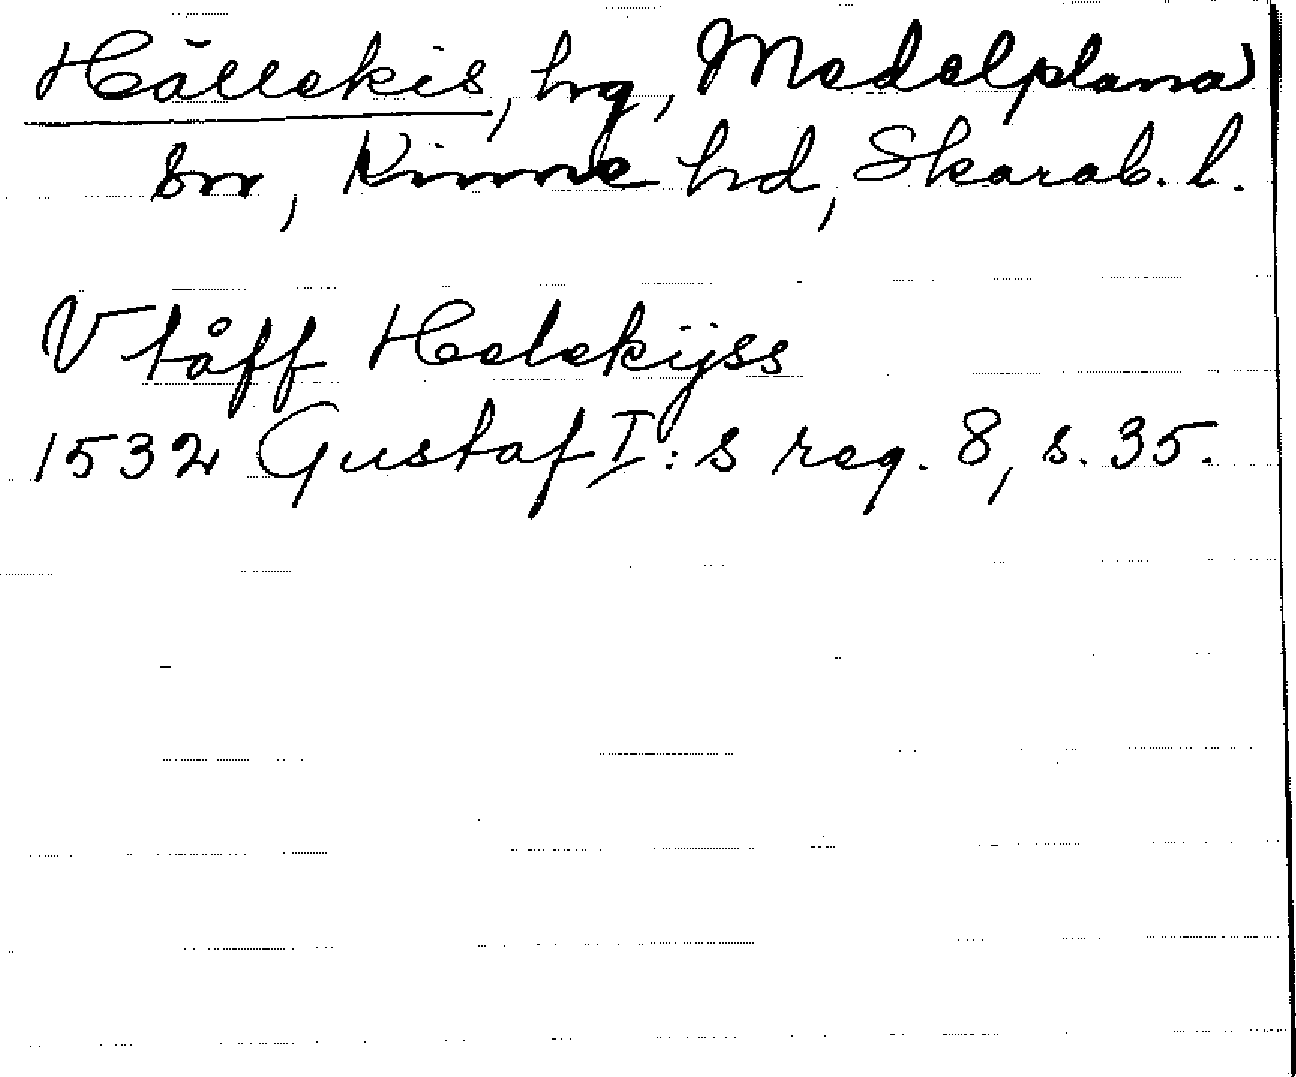 Hällekis, hg, Medelplana
sn, Kinne hd, Skarab. l.
Vtåff Helekijss
1532 Gustaf I:s reg. 8, s. 35.